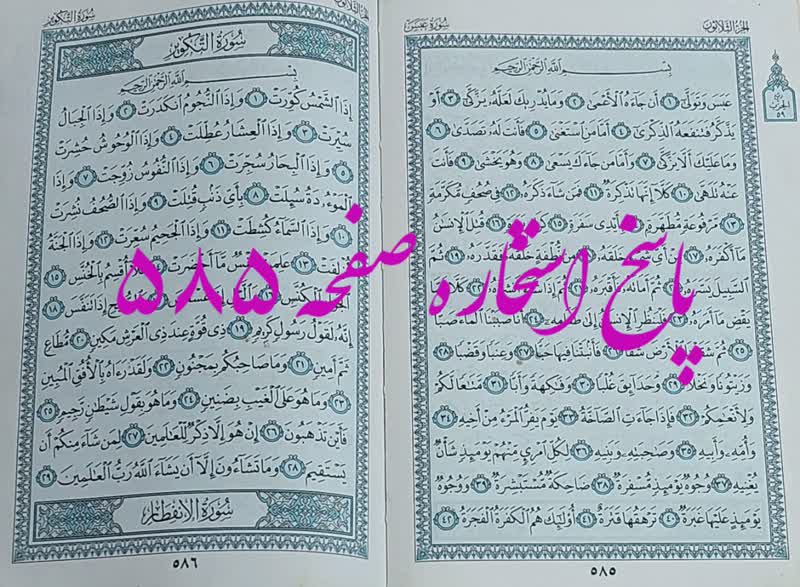 الجزء الثلاثون
سورة عبس
الحزب ٥٩
بِسْمِ اللَّهِ الرَّحْمَٰنِ الرَّحِيمِ
عَبَسَ وَتَوَلَّىٰ ١ أَن جَاءَهُ الْأَعْمَىٰ ٢ وَمَا يُدْرِيكَ لَعَلَّهُ يَزَّكَّىٰ ٣ أَوْ
يَذَّكَّرُ فَتَنفَعَهُ الذِّكْرَىٰ ٤ أَمَّا مَنِ اسْتَغْنَىٰ ٥ فَأَنتَ لَهُ تَصَدَّىٰ ٦
وَمَا عَلَيْكَ أَلَّا يَزَّكَّىٰ ٧ وَأَمَّا مَن جَاءَكَ يَسْعَىٰ ٨ وَهُوَ يَخْشَىٰ ٩ فَأَنتَ
عَنْهُ تَلَهَّىٰ ١٠ كَلَّا إِنَّهَا تَذْكِرَةٌ ١١ فَمَن شَاءَ ذَكَرَهُ ١٢ فِي صُحُفٍ مُّكَرَّمَةٍ
١٣ مَّرْفُوعَةٍ مُّطَهَّرَةٍ ١٤ بِأَيْدِي سَفَرَةٍ ١٥ قُتِلَ الْإِنسَانُ
مَا أَكْفَرَهُ ١٧ مِنْ أَيِّ شَيْءٍ خَلَقَهُ ١٨ مِن نُّطْفَةٍ خَلَقَهُ فَقَدَّرَهُ ١٩ ثُمَّ
السَّبِيلَ يَسَّرَهُ ٢٠ ثُمَّ أَمَاتَهُ فَأَقْبَرَهُ ٢١ ثُمَّ إِذَا شَاءَ أَنشَرَهُ ٢٢ كَلَّا لَمَّا
يَقْضِ مَا أَمَرَهُ ٢٣ فَلْيَنظُرِ الْإِنسَانُ إِلَىٰ طَعَامِهِ ٢٤ أَنَّا صَبَبْنَا الْمَاءَ صَبًّا
٢٥ ثُمَّ شَقَقْنَا الْأَرْضَ شَقًّا ٢٦ فَأَنبَتْنَا فِيهَا حَبًّا ٢٧ وَعِنَبًا وَقَضْبًا ٢٨
وَزَيْتُونًا وَنَخْلًا ٢٩ وَحَدَائِقَ غُلْبًا ٣٠ وَفَاكِهَةً وَأَبًّا ٣١ مَّتَاعًا لَّكُمْ
وَلِأَنْعَامِكُمْ ٣٢ فَإِذَا جَاءَتِ الصَّاخَّةُ ٣٣ يَوْمَ يَفِرُّ الْمَرْءُ مِنْ أَخِيهِ ٣٤
وَأُمِّهِ وَأَبِيهِ ٣٥ وَصَاحِبَتِهِ وَبَنِيهِ ٣٦ لِكُلِّ امْرِئٍ مِّنْهُمْ يَوْمَئِذٍ شَأْنٌ
يُغْنِيهِ ٣٧ وُجُوهٌ يَوْمَئِذٍ مُّسْفِرَةٌ ٣٨ ضَاحِكَةٌ مُّسْتَبْشِرَةٌ ٣٩ وَوُجُوهٌ
يَوْمَئِذٍ عَلَيْهَا غَبَرَةٌ ٤٠ تَرْهَقُهَا قَتَرَةٌ ٤١ أُولَٰئِكَ هُمُ الْكَفَرَةُ الْفَجَرَةُ ٤٢
٥٨٥
پاسخ استخاره صفحه ۵۸۵
الجزء الثلاثون
سورة التكوير
سُورَةُ التَّكْوِيرِ
بِسْمِ اللَّهِ الرَّحْمَٰنِ الرَّحِيمِ
إِذَا الشَّمْسُ كُوِّرَتْ ١ وَإِذَا النُّجُومُ انكَدَرَتْ ٢ وَإِذَا الْجِبَالُ
سُيِّرَتْ ٣ وَإِذَا الْعِشَارُ عُطِّلَتْ ٤ وَإِذَا الْوُحُوشُ حُشِرَتْ
٥ وَإِذَا الْبِحَارُ سُجِّرَتْ ٦ وَإِذَا النُّفُوسُ زُوِّجَتْ ٧ وَإِذَا
الْمَوْءُودَةُ سُئِلَتْ ٨ بِأَيِّ ذَنبٍ قُتِلَتْ ٩ وَإِذَا الصُّحُفُ نُشِرَتْ
١٠ وَإِذَا السَّمَاءُ كُشِطَتْ ١١ وَإِذَا الْجَحِيمُ سُعِّرَتْ ١٢ وَإِذَا الْجَنَّةُ
أُزْلِفَتْ ١٣ عَلِمَتْ نَفْسٌ مَّا أَحْضَرَتْ ١٤ فَلَا أُقْسِمُ بِالْخُنَّسِ ١٥
الْجَوَارِ الْكُنَّسِ ١٦ وَاللَّيْلِ إِذَا عَسْعَسَ ١٧ وَالصُّبْحِ إِذَا تَنَفَّسَ ١٨
إِنَّهُ لَقَوْلُ رَسُولٍ كَرِيمٍ ١٩ ذِي قُوَّةٍ عِندَ ذِي الْعَرْشِ مَكِينٍ ٢٠ مُّطَاعٍ
ثَمَّ أَمِينٍ ٢١ وَمَا صَاحِبُكُم بِمَجْنُونٍ ٢٢ وَلَقَدْ رَآهُ بِالْأُفُقِ الْمُبِينِ
٢٣ وَمَا هُوَ عَلَى الْغَيْبِ بِضَنِينٍ ٢٤ وَمَا هُوَ بِقَوْلِ شَيْطَانٍ رَّجِيمٍ ٢٥
فَأَيْنَ تَذْهَبُونَ ٢٦ إِنْ هُوَ إِلَّا ذِكْرٌ لِّلْعَالَمِينَ ٢٧ لِمَن شَاءَ مِنكُمْ أَن
يَسْتَقِيمَ ٢٨ وَمَا تَشَاءُونَ إِلَّا أَن يَشَاءَ اللَّهُ رَبُّ الْعَالَمِينَ ٢٩
سُورَةُ الْانفِطَارِ
٥٨٦